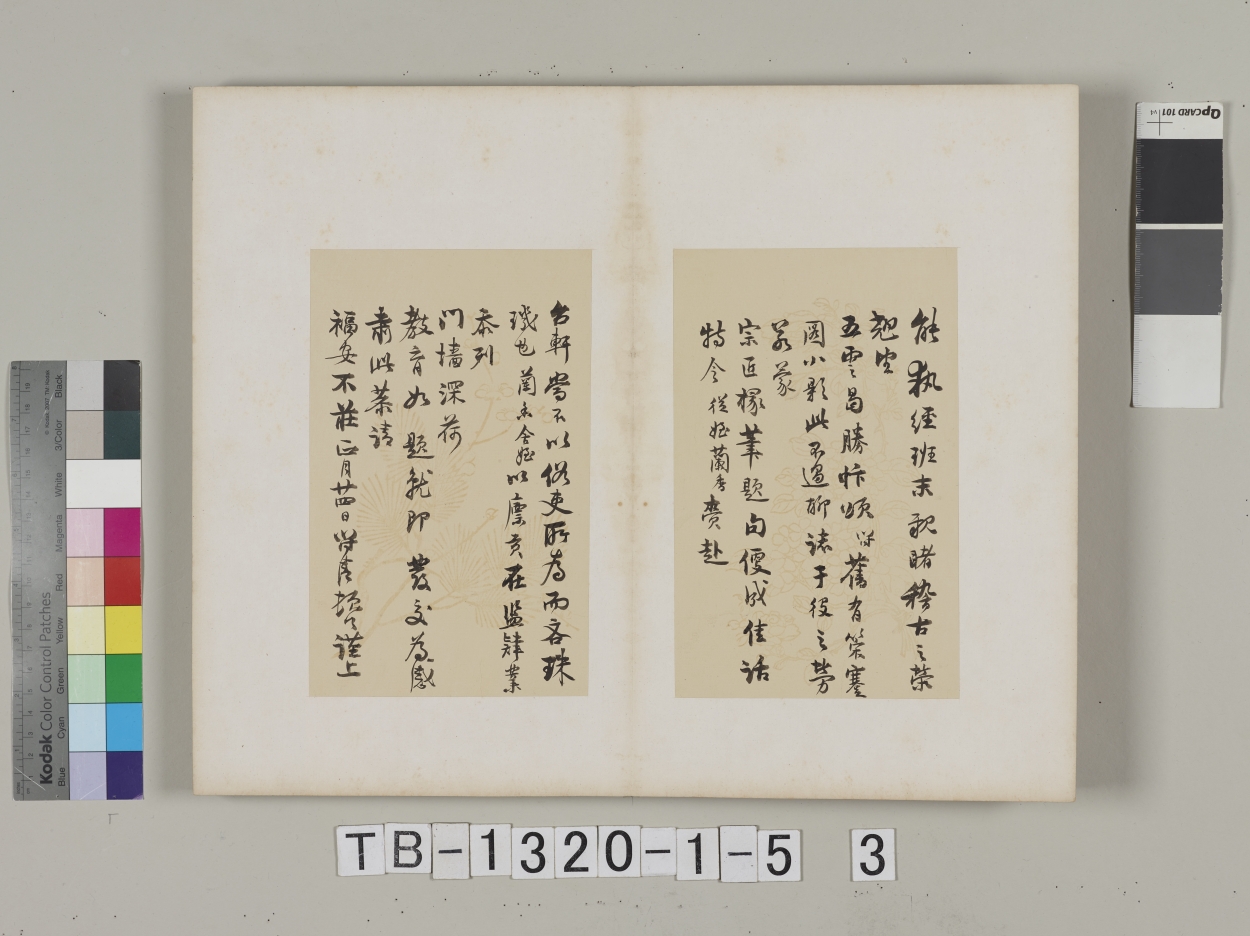 能執經班末親睹稽古之榮
翹望
五雲曷勝忭頌 舊有策蹇
圖小影此不過聊誌于役之勞
若蒙
宗匠椽筆題句便成佳話
特令從姪蘭香賫赴
台軒當不以俗吏所為而吝珠
璣也蘭香舍姪以廩貢在監肄業
忝列
門墻深荷
教育如題就即發交為感
肅此恭請
福安不莊正月廿四日 頓謹上
TB-1320-1-5 3
QPCARD 101 v1
Kodak Color Control Patches
Blue
Cyan
Green
Yellow
Red
Magenta
White
3/Color
Black